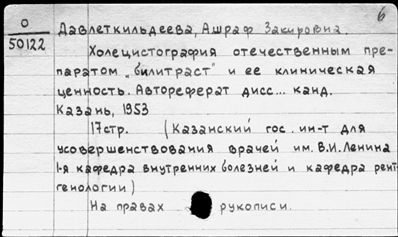 6
О
50122
Давлеткильдеева, Ашраф Закировна.
Холецистография отечественным пре-
паратом „билитраст" и ее клиническая
ценность. Автореферат дисс... канд.
Казань, 1953
17стр. (Казанский гос. ин-т для
усовершенствования врачей им. В.И. Ленина
1-я кафедра внутренних болезней и кафедра рент-
генологии)
На правах рукописи.